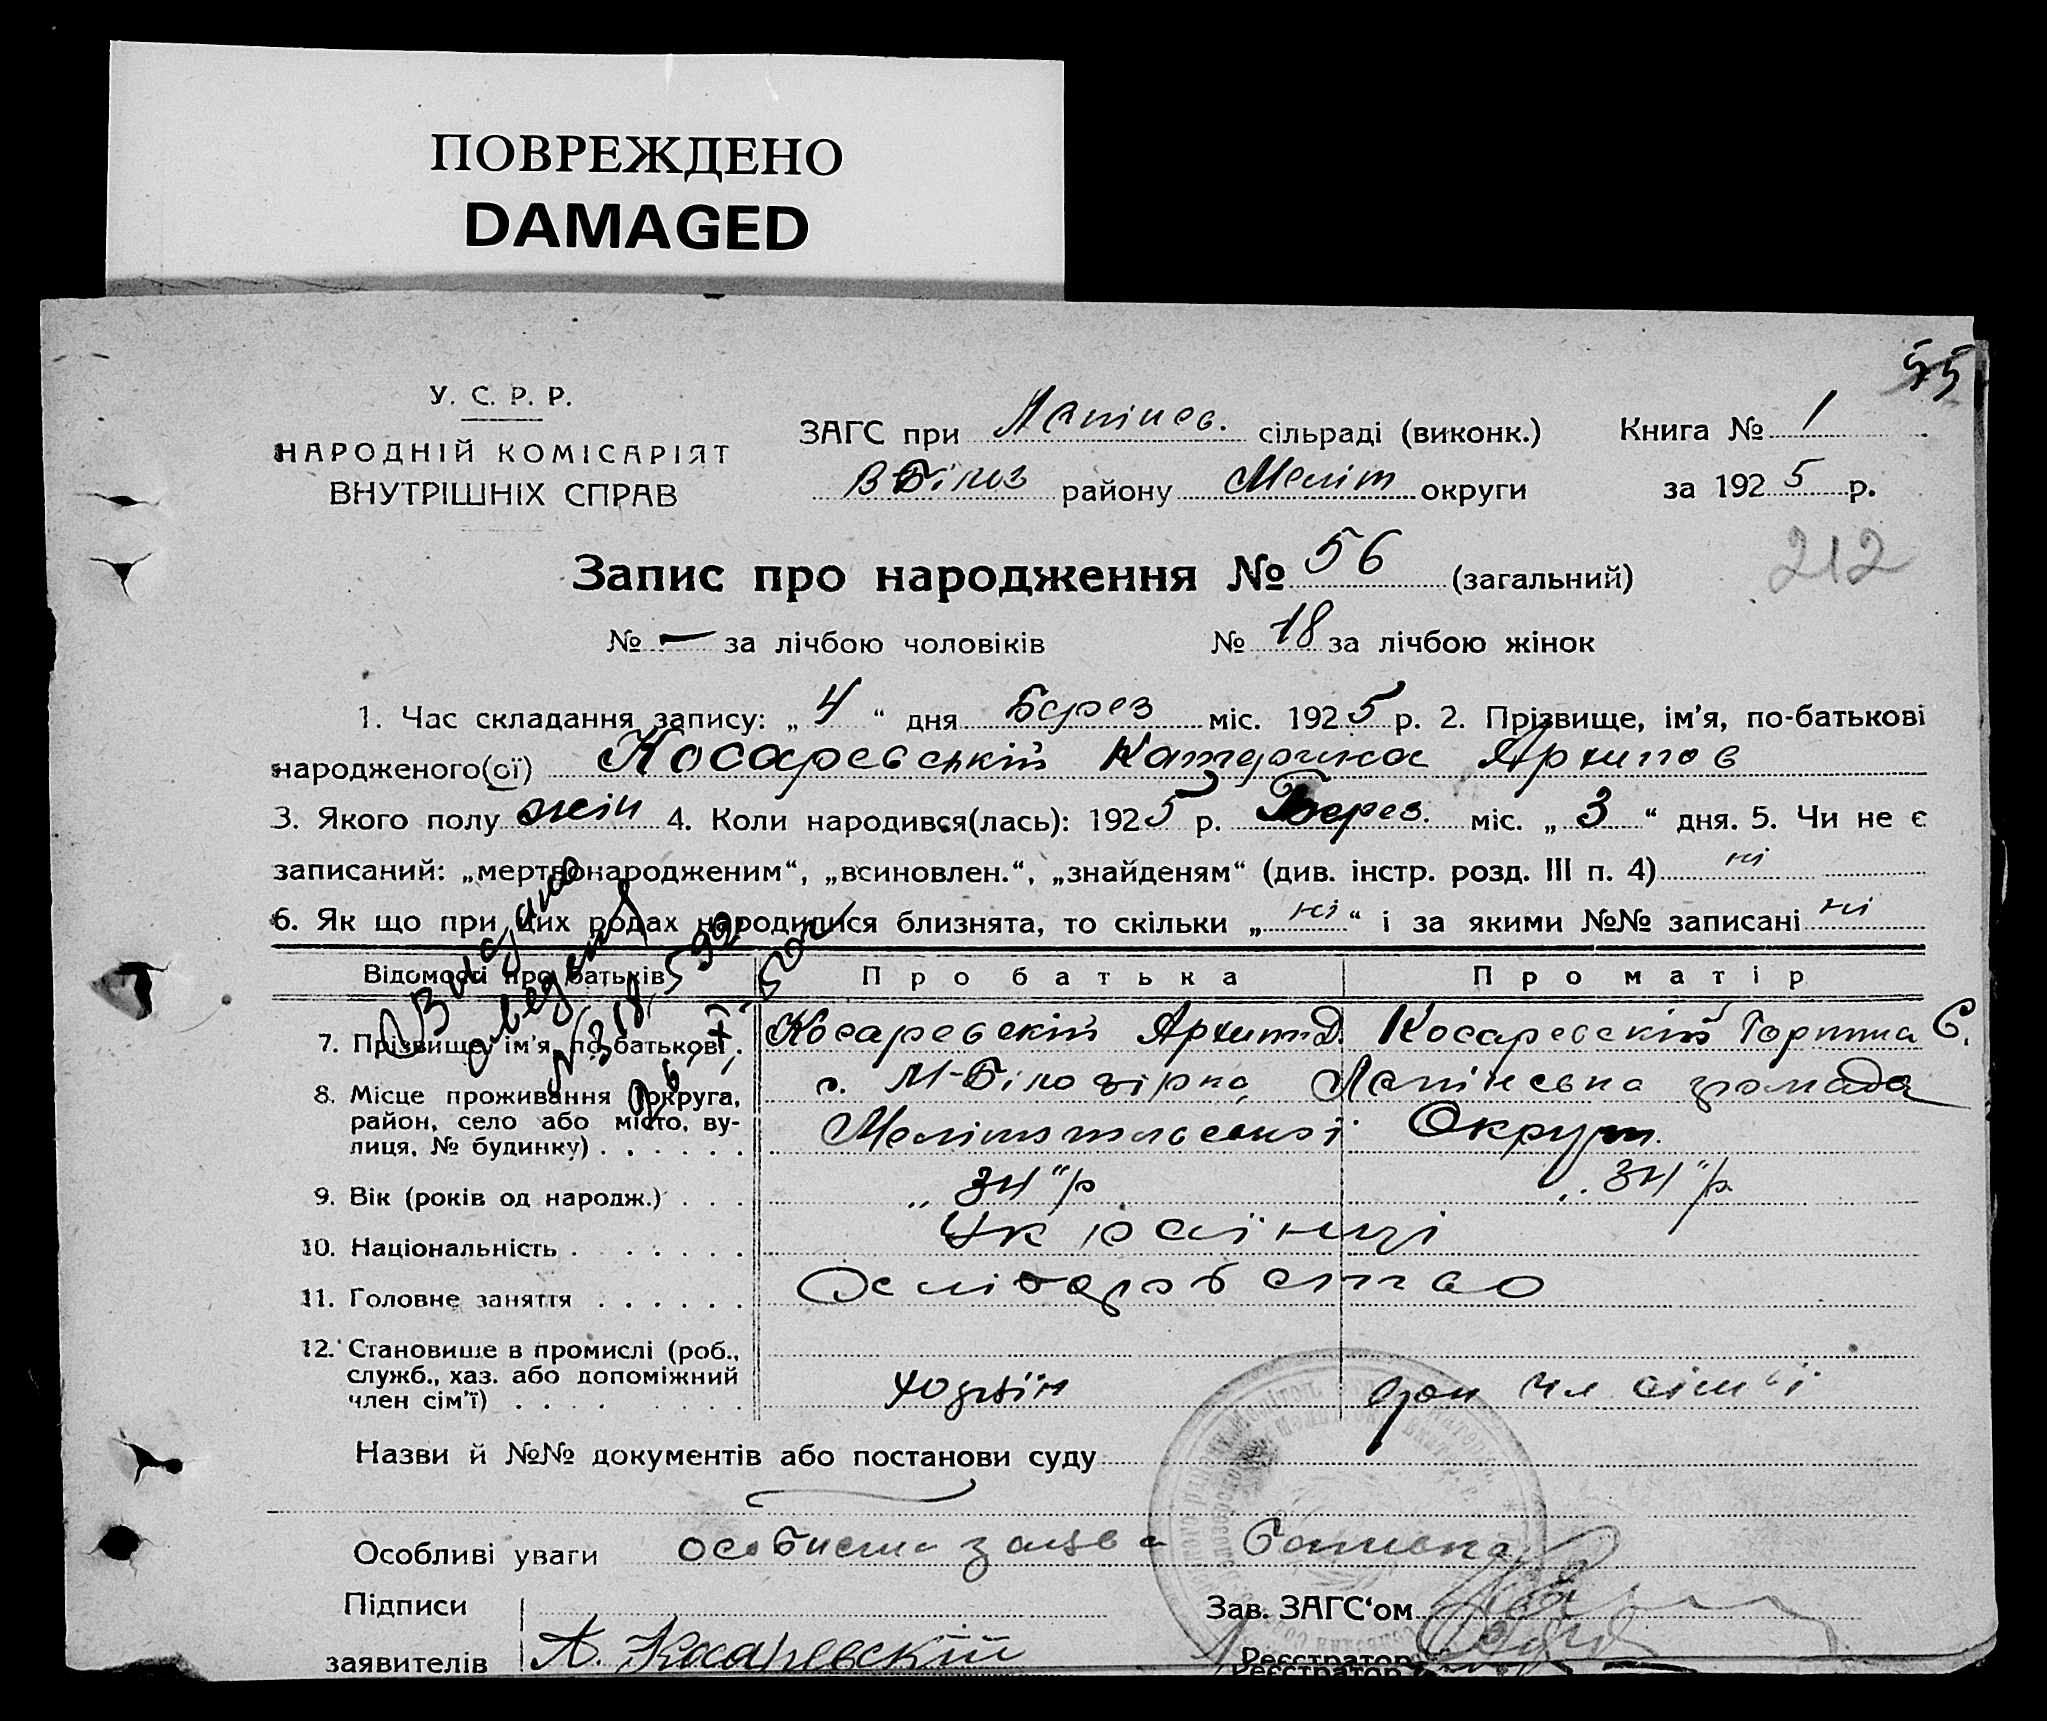 ПОВРЕЖДЕНО
DAMAGED
55
У. С. Р. Р.
НАРОДНІЙ КОМІСАРІЯТ
ВНУТРІШНІХ СПРАВ
ЗАГС при Лапінсв. сільраді (виконк.)
В Білоз району Меліт округи
Книга № 1
за 1925 р.
212
Запис про народження № 56 (загальний)
№ — за лічбою чоловіків № 18 за лічбою жінок
1. Час складання запису: „ 4 “ дня Берез міс. 1925 р. 2. Прізвище, ім'я, по-батькові
народженого(ої) Косаревській Катерина Архипов
3. Якого полу жін 4. Коли народився(лась): 1925 р. Берез. міс. „ 3 “ дня. 5. Чи не є
записаний: „мертвонародженим“, „всиновлен.“, „знайденям“ (див. інстр. розд. III п. 4) ні
6. Як що при цих родах народилися близнята, то скільки „ ні “ і за якими №№ записані ні
Відомості про батьків Про батька Про матір
7. Прізвище, ім'я, по-батькові, Косаревскій Архип Д. Косаревскій Горпина Є.
8. Місце проживання (округа, с. М-Білозірка, Лапінська громада
район, село або місто, ву- Мелітопольської Округи.
лиця, № будинку)
9. Вік (років од народж.) „ 34 “ р „ 34 “ р.
10. Національність Українці
11. Головне заняття
12. Становище в промислі (роб.,
служб., хаз. або допоміжний хозяїн доп чл сім'ї
член сім'ї)
Назви й №№ документів або постанови суду
Особливі уваги особиста заява батька
Підписи Зав. ЗАГС‘ом
заявителів А. Косаревскій Реєстратор
Реєстратор